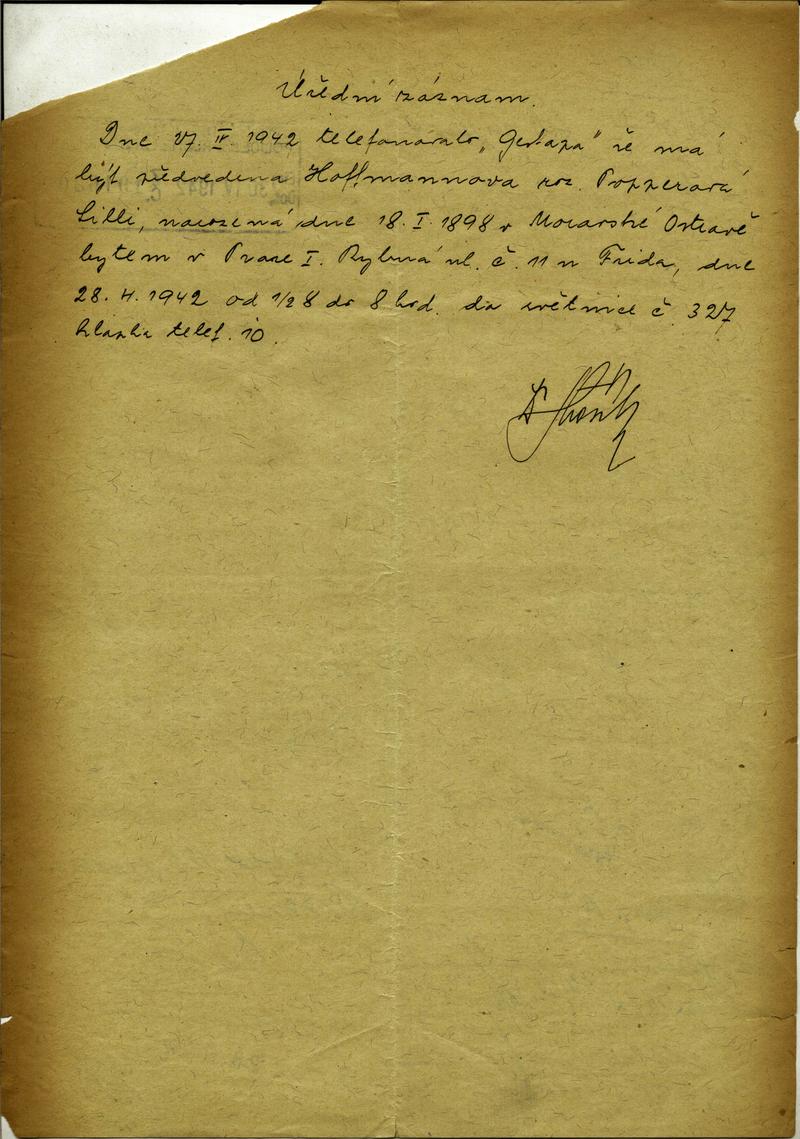 Úřední záznam.
Dne 27. IV. 1942 telefonovalo „Gestapa" že má
být předvedena Hoffmannova roz. Popperová
Lilli, narozená dne 18. I. 1898 v Moravské Ostravě
bytem v Praze I. Rybná ul. č. 11 u Frida, dne
28. 4. 1942 od 1/2 8 do 8 hod. do světnice č. 327
klapka telef. 10.